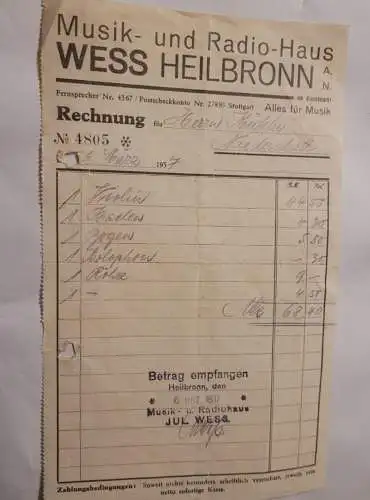 Musik- und Radio-Haus
WESS HEILBRONN A. N.
Fernsprecher Nr. 4567 / Postscheckkonto Nr. 27880 Stuttgart Alles für Musik
Rechnung für Herrn
№ 4805 * 
März 1937
RM
1 Violine 44 50
1 Kasten
1 Bogen 5 50
1 Kolophon
1 9 -
1 - 4
68 40
Betrag empfangen
Heilbronn, den
Musik- u. Radiohaus
JUL. WESS
Zahlungsbedingungen: Soweit nichts besonders schriftlich vereinbart, jeweils rein
netto sofortige Kasse.